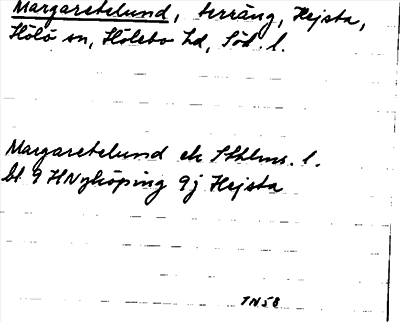 Margaretelund, terräng, Hejsta,
Hölö sn, Hölebo hd, Söd. l.
Margaretelund ek Sthlms. l.
bl. 9 H Nyköping 9j Hejsta
TN58